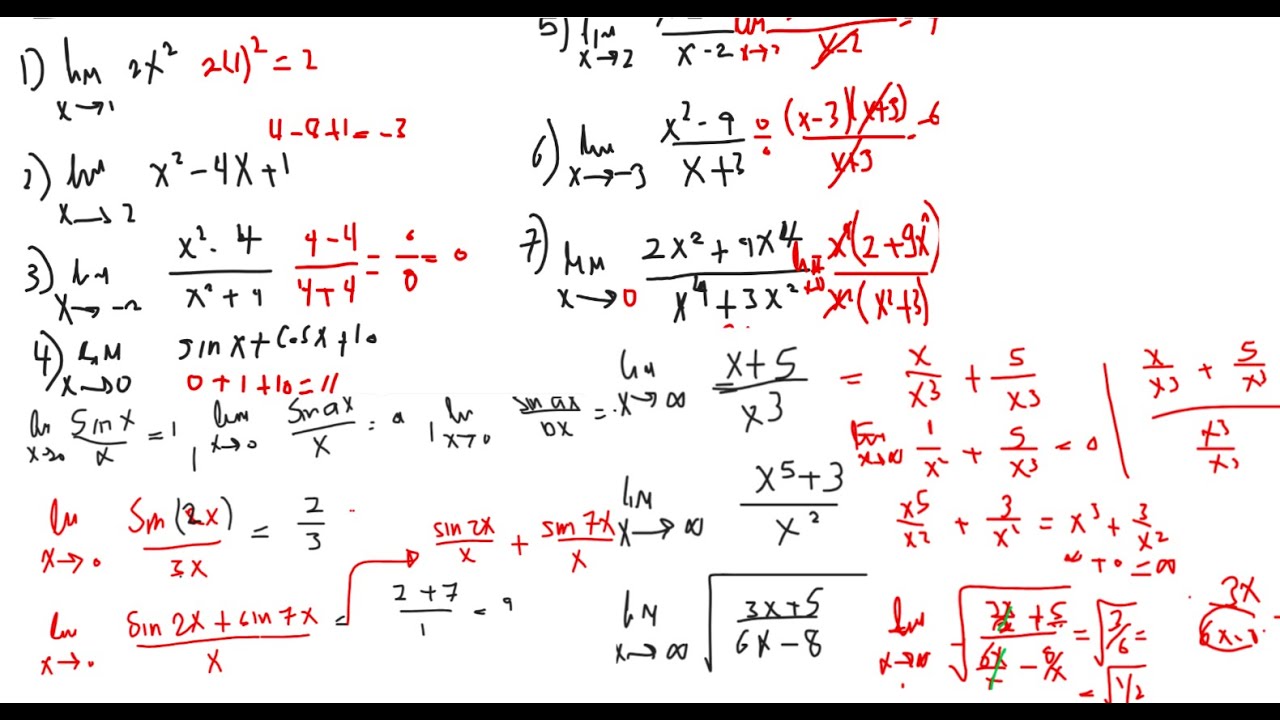 1) lim x→1 2x² 2(1)² = 2
4-8+1 = -3
2) lim x→2 x² - 4x + 1
3) lim x→-2 (x² - 4)/(x² + 4) (4-4)/(4+4) = 0/0 = 0
4) lim x→0 sin x + cos x + 10
0 + 1 + 10 = 11
lim x→0 sin x/x = 1 lim x→0 sin ax/x = a lim x→0 sin ax/bx =
lim x→0 sin(2x)/3x = 2/3
lim x→0 (sin 2x + sin 7x)/x = (2+7)/1 = 9
sin 2x/x + sin 7x/x
5) lim x→2 /(x-2) lim x→2 /(x-2) =
6) lim x→-3 (x² - 9)/(x+3) 0/0 = (x-3)(x+3)/(x+3) = -6
7) lim x→0 (2x² + 9x4)/(x4 + 3x²) lim x→0 (2 + 9x²)/x²(x²+3)
lim x→∞ (x+5)/x3 = x/x3 + 5/x3 | (x/x3 + 5/x3)/(x3/x3)
lim x→∞ 1/x² + 5/x3 = 0
lim x→∞ (x5+3)/x² x5/x² + 3/x² = x³ + 3/x²
∞ + 0 = ∞
lim x→∞ √((3x+5)/(6x-8)) lim x→∞ = √(3/6) =
= √(1/2)
3x